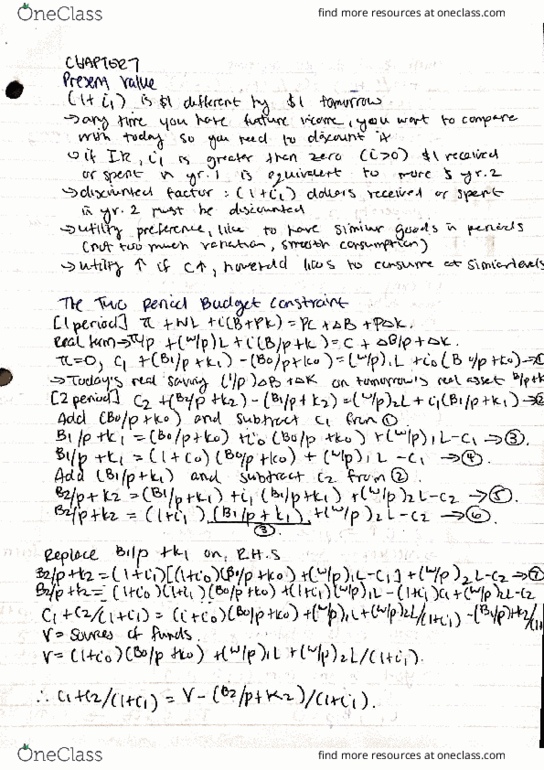 OneClass
find more resources at oneclass.com
CHAPTER 7
Present Value
(1+i₁) is $1 different by $1 tomorrow
→ any time you have future income, you want to compare
with today so you need to discount it
if IR, i₁ is greater then zero (i>0) $1 received
or spent in yr. 1 is equivalent to more $ yr. 2
→ discounted factor: (1+i₁) dollars received or spent
in yr. 2 must be discounted
→ utility preference, like to have similar goods in periods
(not too much variation, smooth consumption)
→ utility ↑ if C↑, likes to consume at similar levels
The Two period Budget Constraint
[1 period] π + WL + i(B+PK) = PC + ΔB + PΔK.
Real term → π/p + (w/p)L + i(B/p+k) = C + ΔB/p + ΔK.
π=0, C₁ + (B₁/p+k₁) - (B₀/p+k₀) = (w/p)₁L + i₀(B₀/p+k₀) →①
→ Today's real saving (1/p)ΔB+ΔK on tomorrow's real asset B/p+k
[2 period] C₂ + (B₂/p+k₂) - (B₁/p+k₂) = (w/p)₂L + i₁(B₁/p+k₁) →②
Add (B₀/p+k₀) and subtract C₁ from ①
B₁/p+k₁ = (B₀/p+k₀) + i₀(B₀/p+k₀) + (w/p)₁L-C₁ →③.
B₁/p+k₁ = (1+i₀)(B₀/p+k₀) + (w/p)₁L-C₁ →④.
Add (B₁/p+k₁) and subtract C₂ from ②
B₂/p+k₂ = (B₁/p+k₁) + i₁(B₁/p+k₁) + (w/p)₂L-C₂ →⑤
B₂/p+k₂ = (1+i₁)(B₁/p+k₁) + (w/p)₂L-C₂ →⑥
③
Replace B₁/p+k₁ on R.H.S
B₂/p+k₂ = (1+i₁)[(1+i₀)(B₀/p+k₀) + (w/p)₁L-C₁] + (w/p)₂L-C₂ →⑦
B₂/p+k₂ = (1+i₀)(1+i₁)(B₀/p+k₀) + (1+i₁)(w/p)₁L-(1+i₁)C₁+(w/p)₂L-C₂
C₁+C₂/(1+i₁) = (1+i₀)(B₀/p+k₀) + (w/p)₁L+(w/p)₂L/(1+i₁) -(B₂/p)+k₂/(1
V = Sources of funds
V = (1+i₀)(B₀/p+k₀) + (w/p)₁L + (w/p)₂L/(1+i₁).
∴ C₁+C₂/(1+i₁) = V-(B₂/p+K₂)/(1+i₁).
OneClass
find more resources at oneclass.com